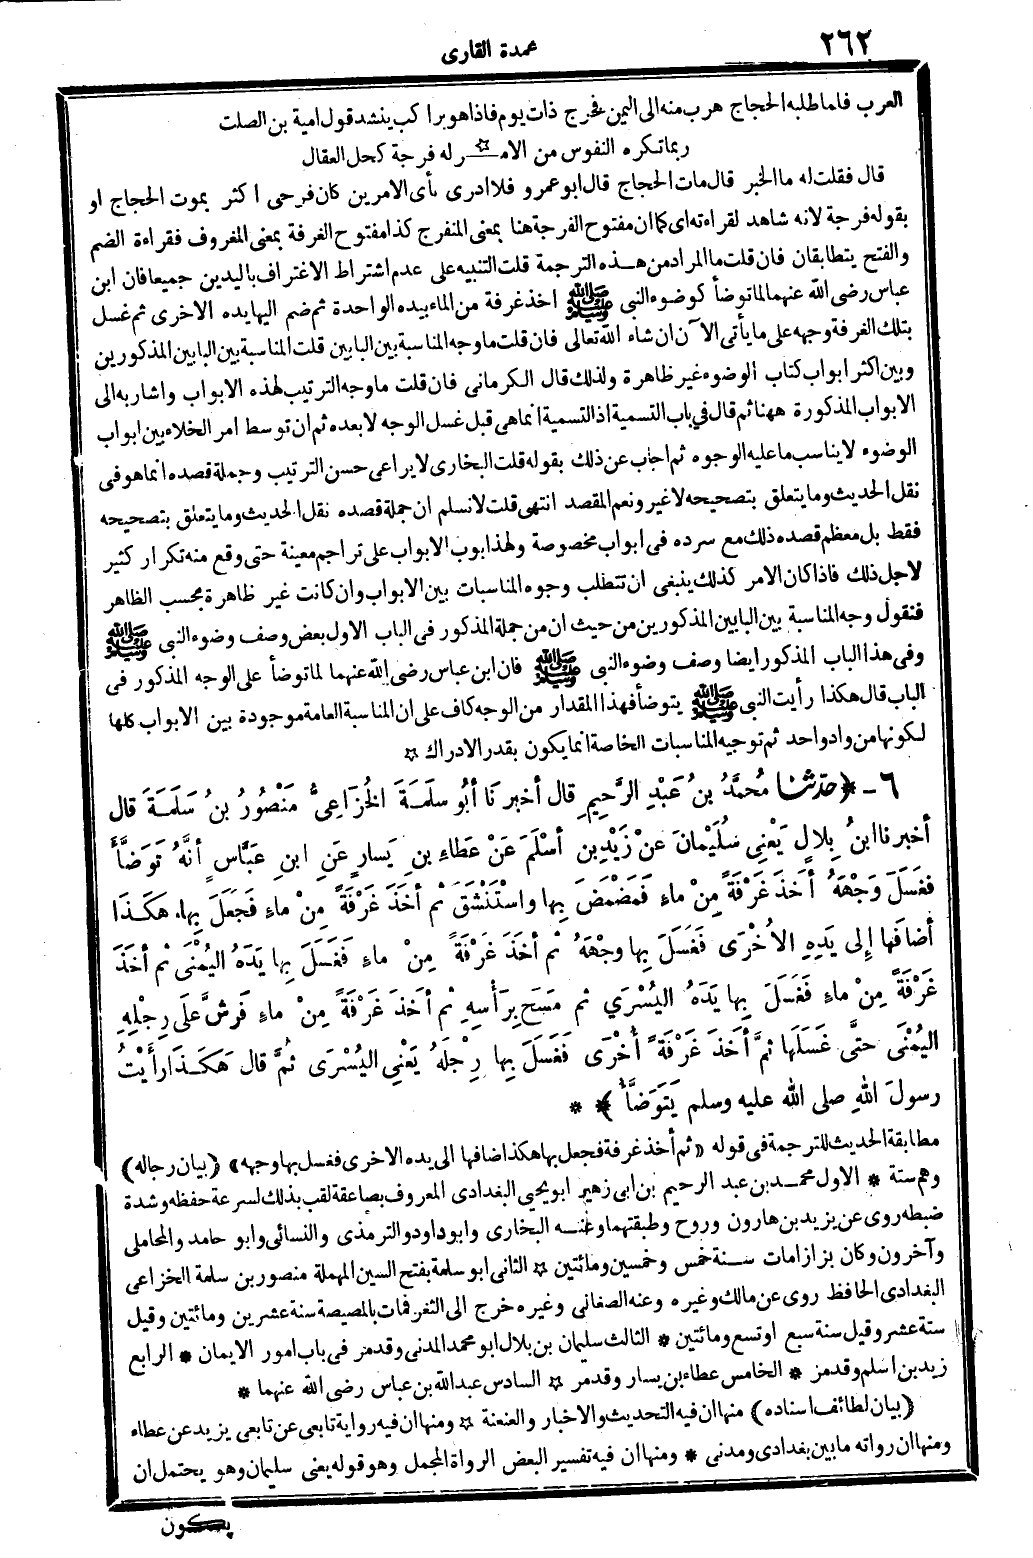 ٢٦٢
عمدة القارى
العرب فلما طلبه الحجاج هرب منه الى اليمن فخرج ذات يوم فاذا هو براكب ينشد قول امية بن الصلت
ربما تكره النفوس من الامـ ـر له فرجة كحل العقال
قال فقلت له ما الخبر قال مات الحجاج قال ابو عمرو فلا ادرى بأى الامرين كان فرحى اكثر بموت الحجاج او
بقوله فرجة لانه شاهد لقراءته اى كما ان مفتوح الفرجة هنا بمعنى المنفرج كذا مفتوح الغرفة بمعنى المغروف فقراءة الضم
والفتح يتطابقان فان قلت ما المراد من هـذه الترجمة قلت التنبيه على عدم اشتراط الاغتراف باليدين جميعا فان ابن
عباس رضى الله عنهما لما توضأ كوضوء النبى ﷺ اخذ غرفة من الماء بيده الواحدة ثم ضم اليها يده الاخرى ثم غسل
بتلك الغرفة وجهه على ما يأتى الآن ان شاء الله تعالى فان قلت ما وجه المناسبة بين البابين قلت المناسبة بين البابين المذكورين
وبين اكثر ابواب كتاب الوضوء غير ظاهرة ولذلك قال الكرمانى فان قلت ما وجه الترتيب لهذه الابواب واشار به الى
الابواب المذكورة ههنا ثم قال فى باب التسمية اذ التسمية انما هى قبل غسل الوجه لا بعده ثم ان توسط امر الخلاء بين ابواب
الوضوء لا يناسب ما عليه الوجوه ثم اجاب عن ذلك بقوله قلت البخارى لا يراعى حسن الترتيب وجملة قصده انما هو فى
نقل الحديث وما يتعلق بتصحيحه لا غير ونعم المقصد انتهى قلت لا نسلم ان جملة قصده نقل الحديث وما يتعلق بتصحيحه
فقط بل معظم قصده ذلك مع سرده فى ابواب مخصوصة ولهذا بوب الابواب على تراجم معينة حتى وقع منه تكرار كثير
لاجل ذلك فاذا كان الامر كذلك ينبغى ان تتطلب وجوه المناسبات بين الابواب وان كانت غير ظاهرة بحسب الظاهر
فنقول وجه المناسبة بين البابين المذكورين من حيث ان من جملة المذكور فى الباب الاول بعض وصف وضوء النبى ﷺ
وفى هذا الباب المذكور ايضا وصف وضوء النبى ﷺ فان ابن عباس رضى الله عنهما لما توضأ على الوجه المذكور فى
الباب قال هكذا رأيت النبى ﷺ يتوضأ فهذا المقدار من الوجه كاف على ان المناسبة العامة موجودة بين الابواب كلها
لكونها من واد واحد ثم توجيه المناسبات الخاصة انما يكون بقدر الادراك ☆
٦ - ﴿ حدثنا مُحَمَّدُ بنُ عَبْدِ الرَّحِيمِ قال أخبرنَا أَبُو سَلَمَةَ الخُزَاعِىُّ مَنْصُورُ بنُ سَلَمَةَ قال
أخبرنا ابنُ بِلَالٍ يَعْنِى سُلَيْمَانَ عَنْ زَيْدِ بنِ أَسْلَمَ عَنْ عَطَاءِ بنِ يَسارٍ عَنِ ابنِ عَبَّاسٍ أَنَّهُ تَوَضَّأَ
فَغَسَلَ وَجْهَهُ أَخَذَ غَرْفَةً مِنْ ماءٍ فَمَضْمَضَ بِها واسْتَنْشَقَ ثم أَخَذَ غَرْفَةً مِنْ ماءٍ فَجَعَلَ بِها هكَذَا
أضافَها إلى يَدِهِ الأُخْرَى فَغَسَلَ بِها وجْهَهُ ثم أخَذَ غَرْفَةً مِنْ ماءٍ فَغَسَلَ بِها يَدَهُ اليُمْنَى ثم أخَذَ
غَرْفَةً مِنْ ماءٍ فَغَسَلَ بِها يَدَهُ اليُسْرَى ثم مَسَحَ بِرَأْسِهِ ثم أخَذَ غَرْفَةً مِنْ ماءٍ فَرَشَّ عَلَى رِجْلِهِ
اليُمْنَى حتَّى غَسَلَها ثمَّ أخَذَ غَرْفَةً أُخْرَى فَغَسَلَ بِها رِجْلَهُ يَعْنِى اليُسْرَى ثُمَّ قال هَكَذَا رأَيْتُ
رسولَ اللهِ صلى الله عليه وسلم يَتَوَضَّأُ ﴾ *
مطابقة الحديث للترجمة فى قوله «ثم أخذ غرفة فجعل بها هكذا اضافها الى يده الاخرى فغسل بها وجهه» (بيان رجاله)
وهم ستة * الاول محمـد بن عبد الرحيم بن ابى زهير ابو يحيى البغدادى المعروف بصاعقة لقب بذلك لسرعة حفظه وشدة
ضبطه روى عن يزيد بن هارون وروح وطبقتهما وعنـه البخارى وابو داود والترمذى والنسائى وابو حامد والمحاملى
وآخرون وكان بزازا مات سـنة خمس وخمسين ومائتين ☆ الثانى ابو سلمة بفتح السين المهملة منصور بن سلمة الخزاعى
البغدادى الحافظ روى عن مالك وغيره وعنه الصغانى وغيره خرج الى الثغر فمات بالمصيصة سنة عشرين ومائتين وقيل
ستة عشر وقيل سنة سبع او تسع ومائتين * الثالث سليمان بن بلال ابو محمد المدنى وقد مر فى باب امور الايمان * الرابع
زيد بن اسلم وقد مر * الخامس عطاء بن يسار وقد مر ☆ السادس عبد الله بن عباس رضى الله عنهما *
(بيان لطائف اسناده) منها ان فيه التحديث والاخبار والعنعنة ☆ ومنها ان فيه رواية تابعى عن تابعى يزيد عن عطاء
ومنها ان رواته ما بين بغدادى ومدنى * ومنها ان فيه تفسير البعض الرواة المجمل وهو قوله يعنى سليمان وهو يحتمل ان
يكون